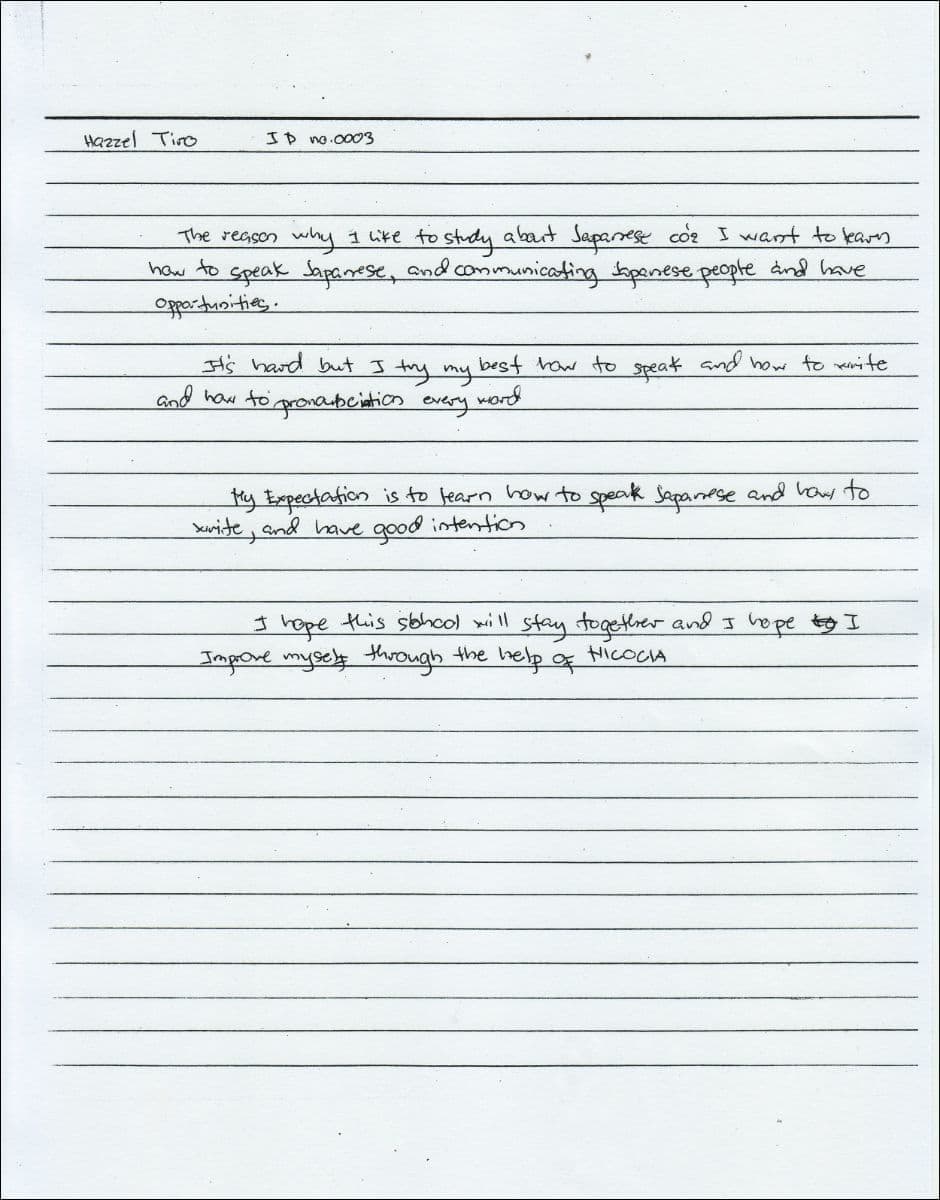 Hazzel Tiro ID no.0003
The reason why I like to study about Japanese coz I want to learn
how to speak Japanese, and communicating Japanese people and have
opportunities.
It's hard but I try my best how to speak and how to write
and how to every word
My Expectation is to learn how to speak Japanese and how to
write, and have good intention
I hope this school will stay together and I hope to I
Improve myself through the help of NICOCIA